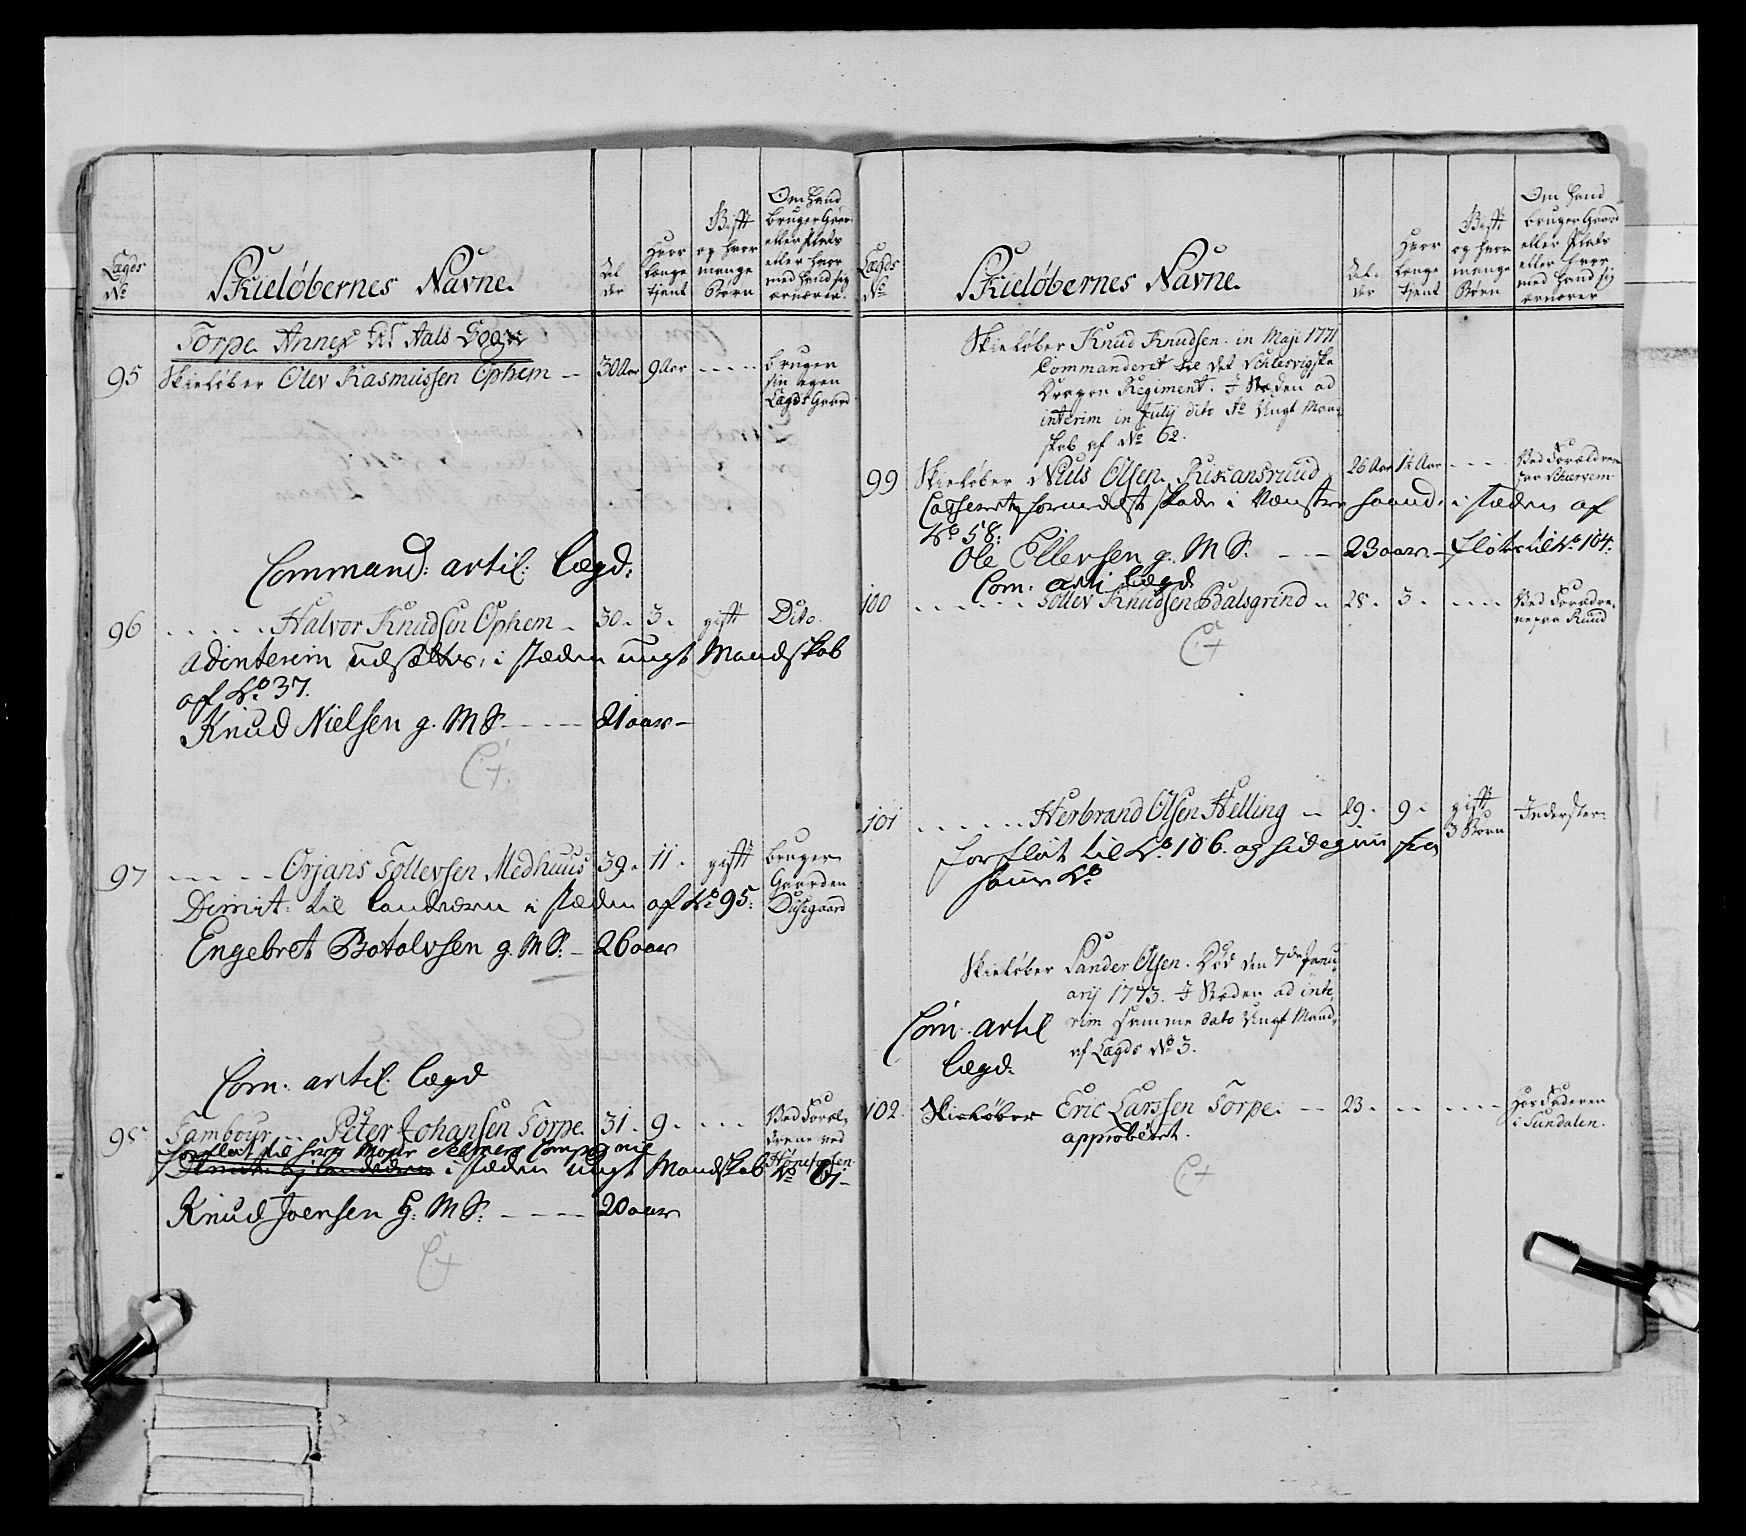 Lægds No
Skieløbernes Navne.
Al der
Hvor længe tjent
Gift og hvor mange Børn
Om hand bruger Gaard eller Plads eller hvor med hand sig ernærer.
Torpe Annex til Aals Sogn
95 Skieløber Olev Rasmussen Ophem -- 30 Aar 9 Aar ----- bruger sin egen Lægds Gaard
Command: artil: lægd:
96 ..... Halvor Knudsen Ophem - 30. 3. gift Dito.
adinterim udsættes, i stæden ungt Mandskab
af No 37.
Knud Nielsen g. M S. ---- 21 aar -
C+.
97 ..... Orjans Tollevsen Medhuus 39. 11. gift bruger Gaarden
Dimit: til landværn i stæden af No 95:
Engebret Botolvsen g. M S: - 26 aar
Com: artil: lægd
98 Tambour ... Peter Johansen Torpe. 31. 9. ... Ved Foræl-
drene ved Hønefossen
forfløt til herr Major Compagnie
i stæden ungt Mandskab No 67-
Knud Joensen g: M S: ---- 20 aar
C+
Lægds No
Skieløbernes Navne.
Al- der
Hvor længe tjent
Gift og hvor mange Børn
Om hand bruger Gaard eller Plads eller hvor med hand sig ernærer
Skieløber Knud Knudsen. in Maji 1771
Commanderet til det Schlesvigske
Dragon Regiment. I Stæden ad
interim in Julij dito Aar Ungt Mand-
skab af No 62.
99 Skieløber Niils Olsen 26 Aar 1½ Aar ---- Ved Forældrene
Casseret formedelst skade i Vænstre haand, i stæden af
No 58:
Ole Ellevsen g. M S. --- 23 aar. - fløt til No 104.
Com: arti lægd
100 ...... Tollev Knudsen Balsgrind - 28. 3. .... Ved Forældre-
ne paa Rund
C+
101 ...... Herbrand Olsen Helling -- 29. 9. gift 3 Børn Inderster.
forfløt til No 106. og fra
No
Skieløber Sander Olsen. Død den 7de Janu-
arij 1773. I Stæden ad inte-
rim samme dato Ungt Mand-
af Lægds No 3.
Com: artil
lægd.
102. Skieløber Eric Larssen Torpe. -- 23. .. .... Hos Faderen
i Sundalen.
approberet.
C+